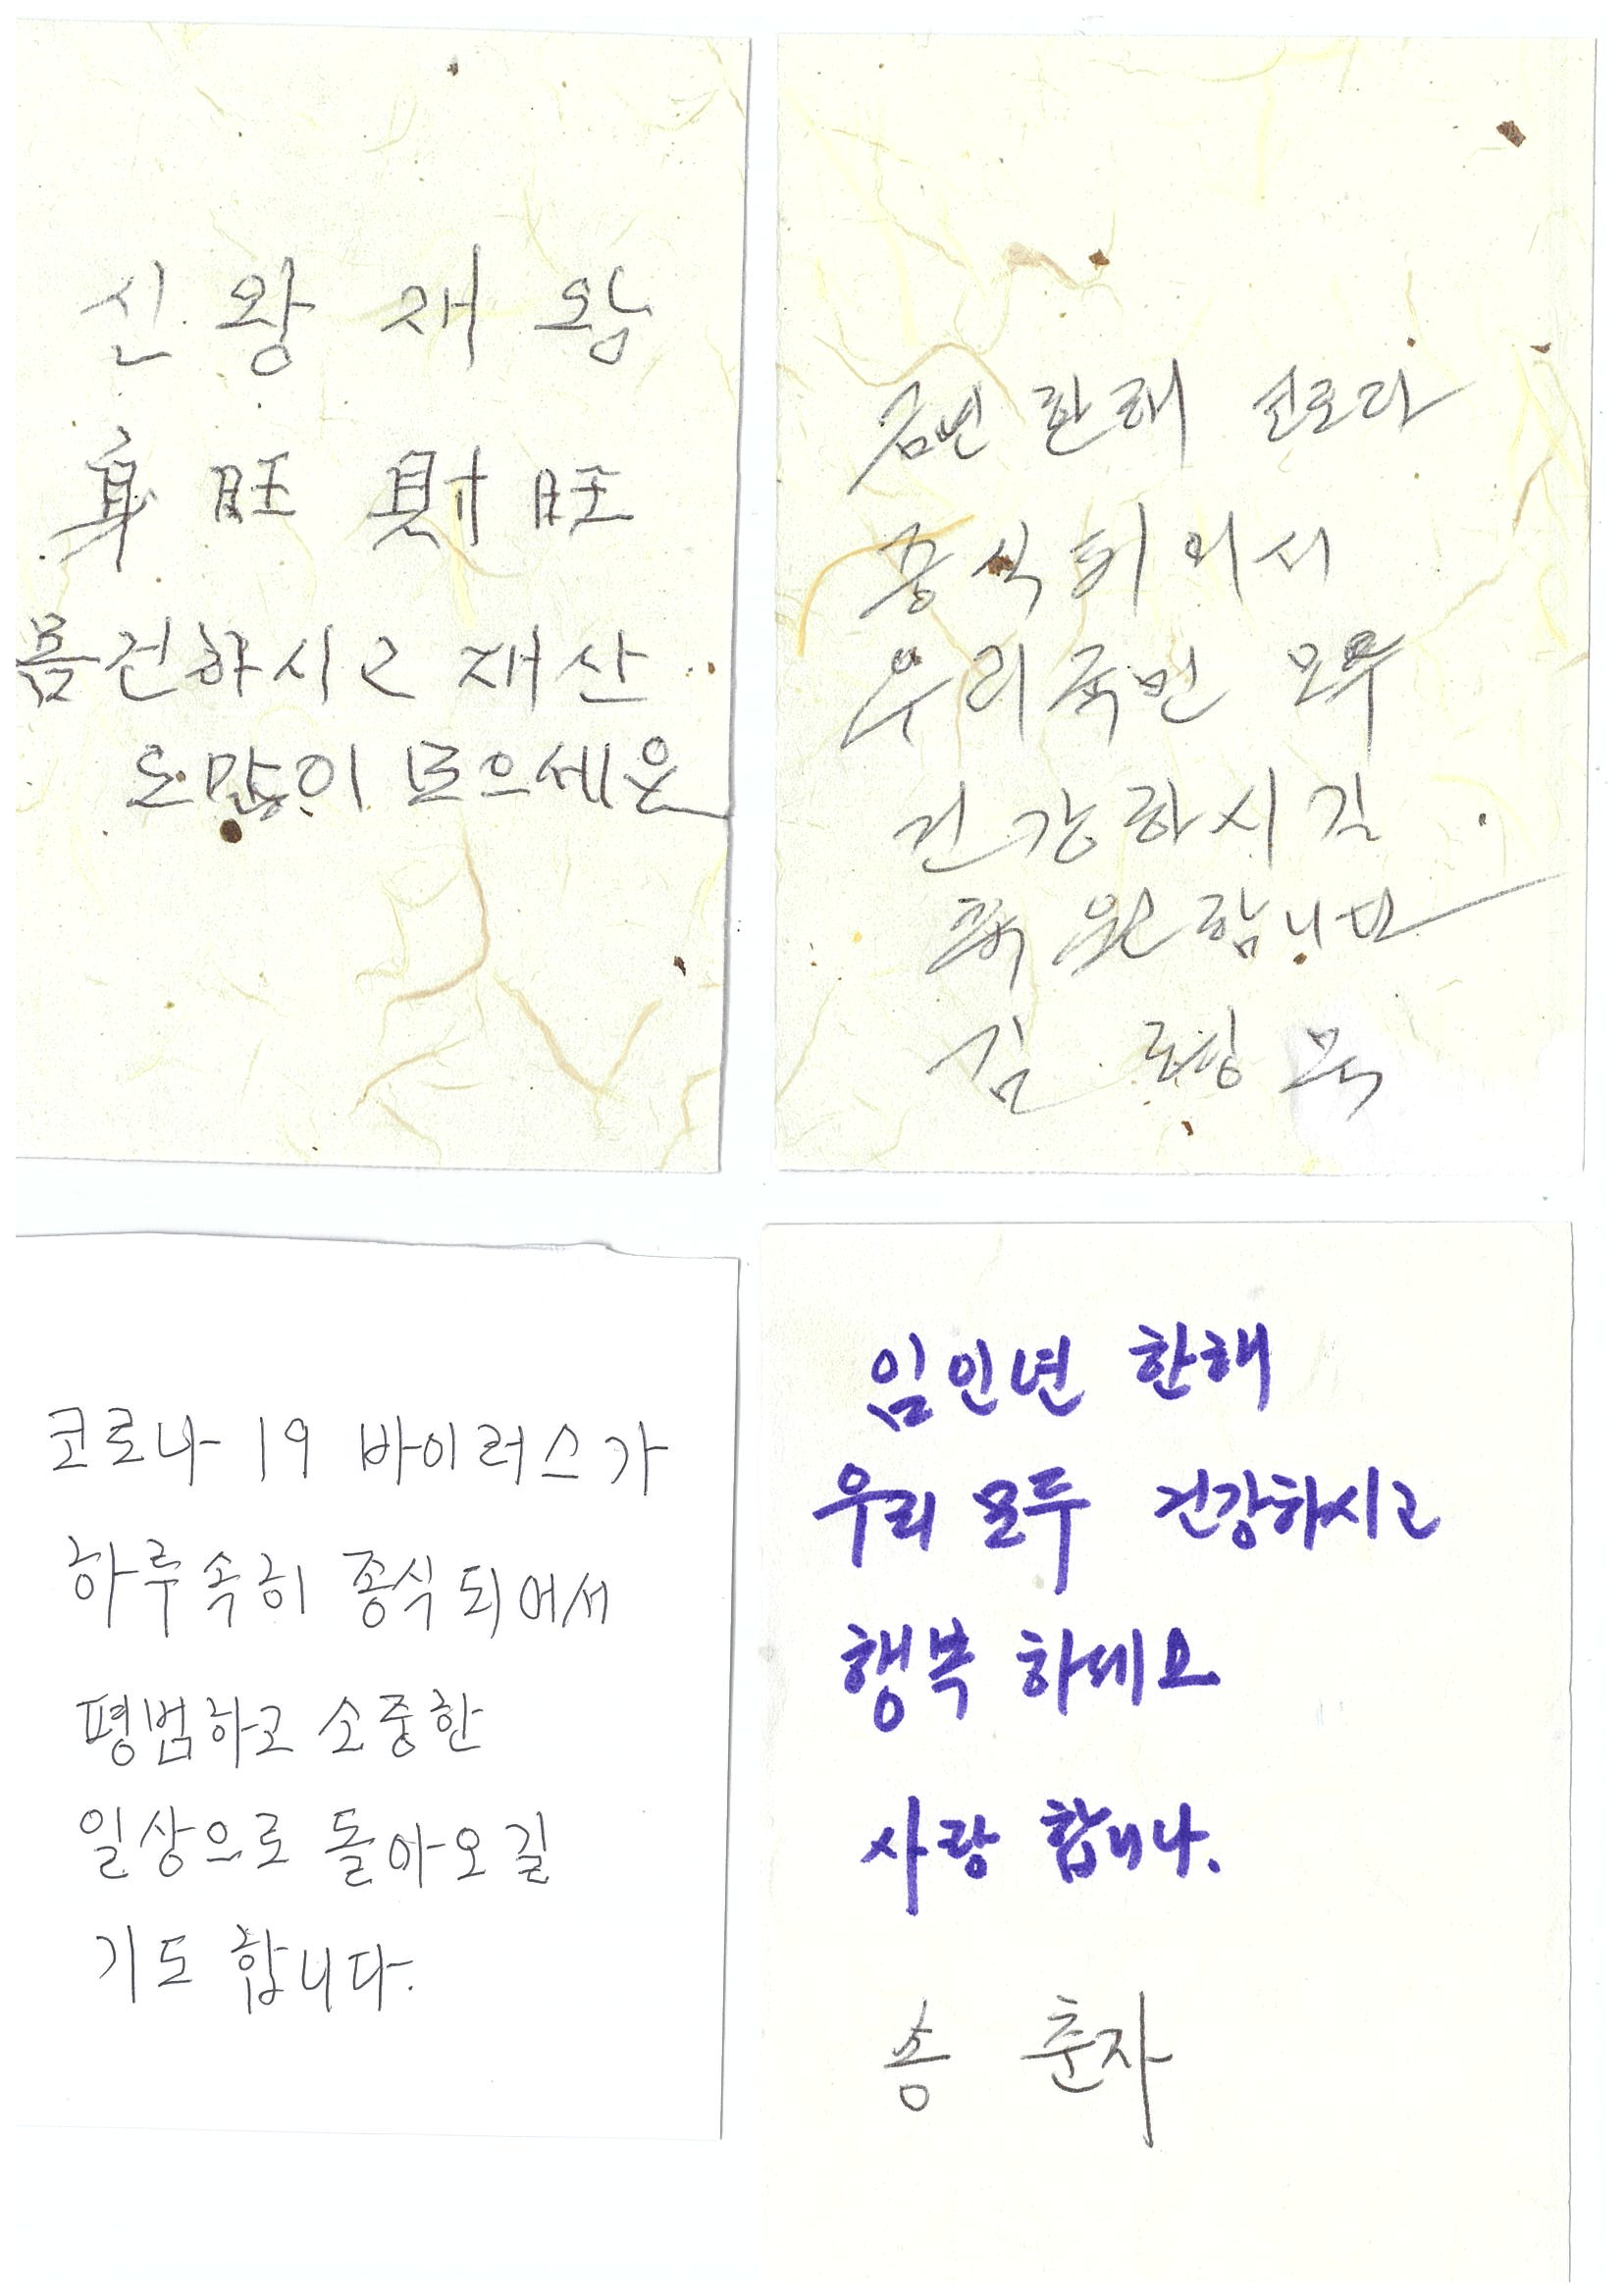 신 왕 재 왕
身 旺 財 旺
몸건하시고 재산
도많이 모으세요
금년 한해 코로나
종식되어서
우리국민 모두
건강하시길
축원합니다
김
코로나 19 바이러스가
하루속히 종식되어서
평범하고 소중한
일상으로 돌아오길
기도 합니다.
임인년 한해
우리 모두 건강하시고
행복 하세요
사랑 합니다.
송 춘자